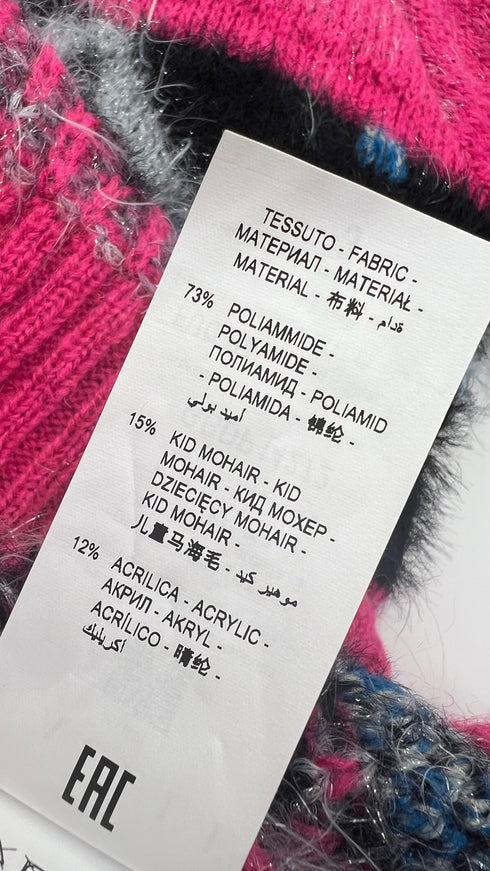 TESSUTO - FABRIC -
МАТЕРИАЛ - MATERIAŁ -
MATERIAL - 布料 - مادة
73% POLIAMMIDE -
POLYAMIDE -
ПОЛИАМИД - POLIAMID
- POLIAMIDA - 锦纶 -
أميد بولي
15% KID MOHAIR - KID
MOHAIR - КИД МОХЕР -
DZIECIĘCY MOHAIR -
KID MOHAIR -
儿童马海毛 - موهير كيد
12% ACRILICA - ACRYLIC -
АКРИЛ - AKRYL -
ACRÍLICO - 腈纶 -
أكريليك
EAC